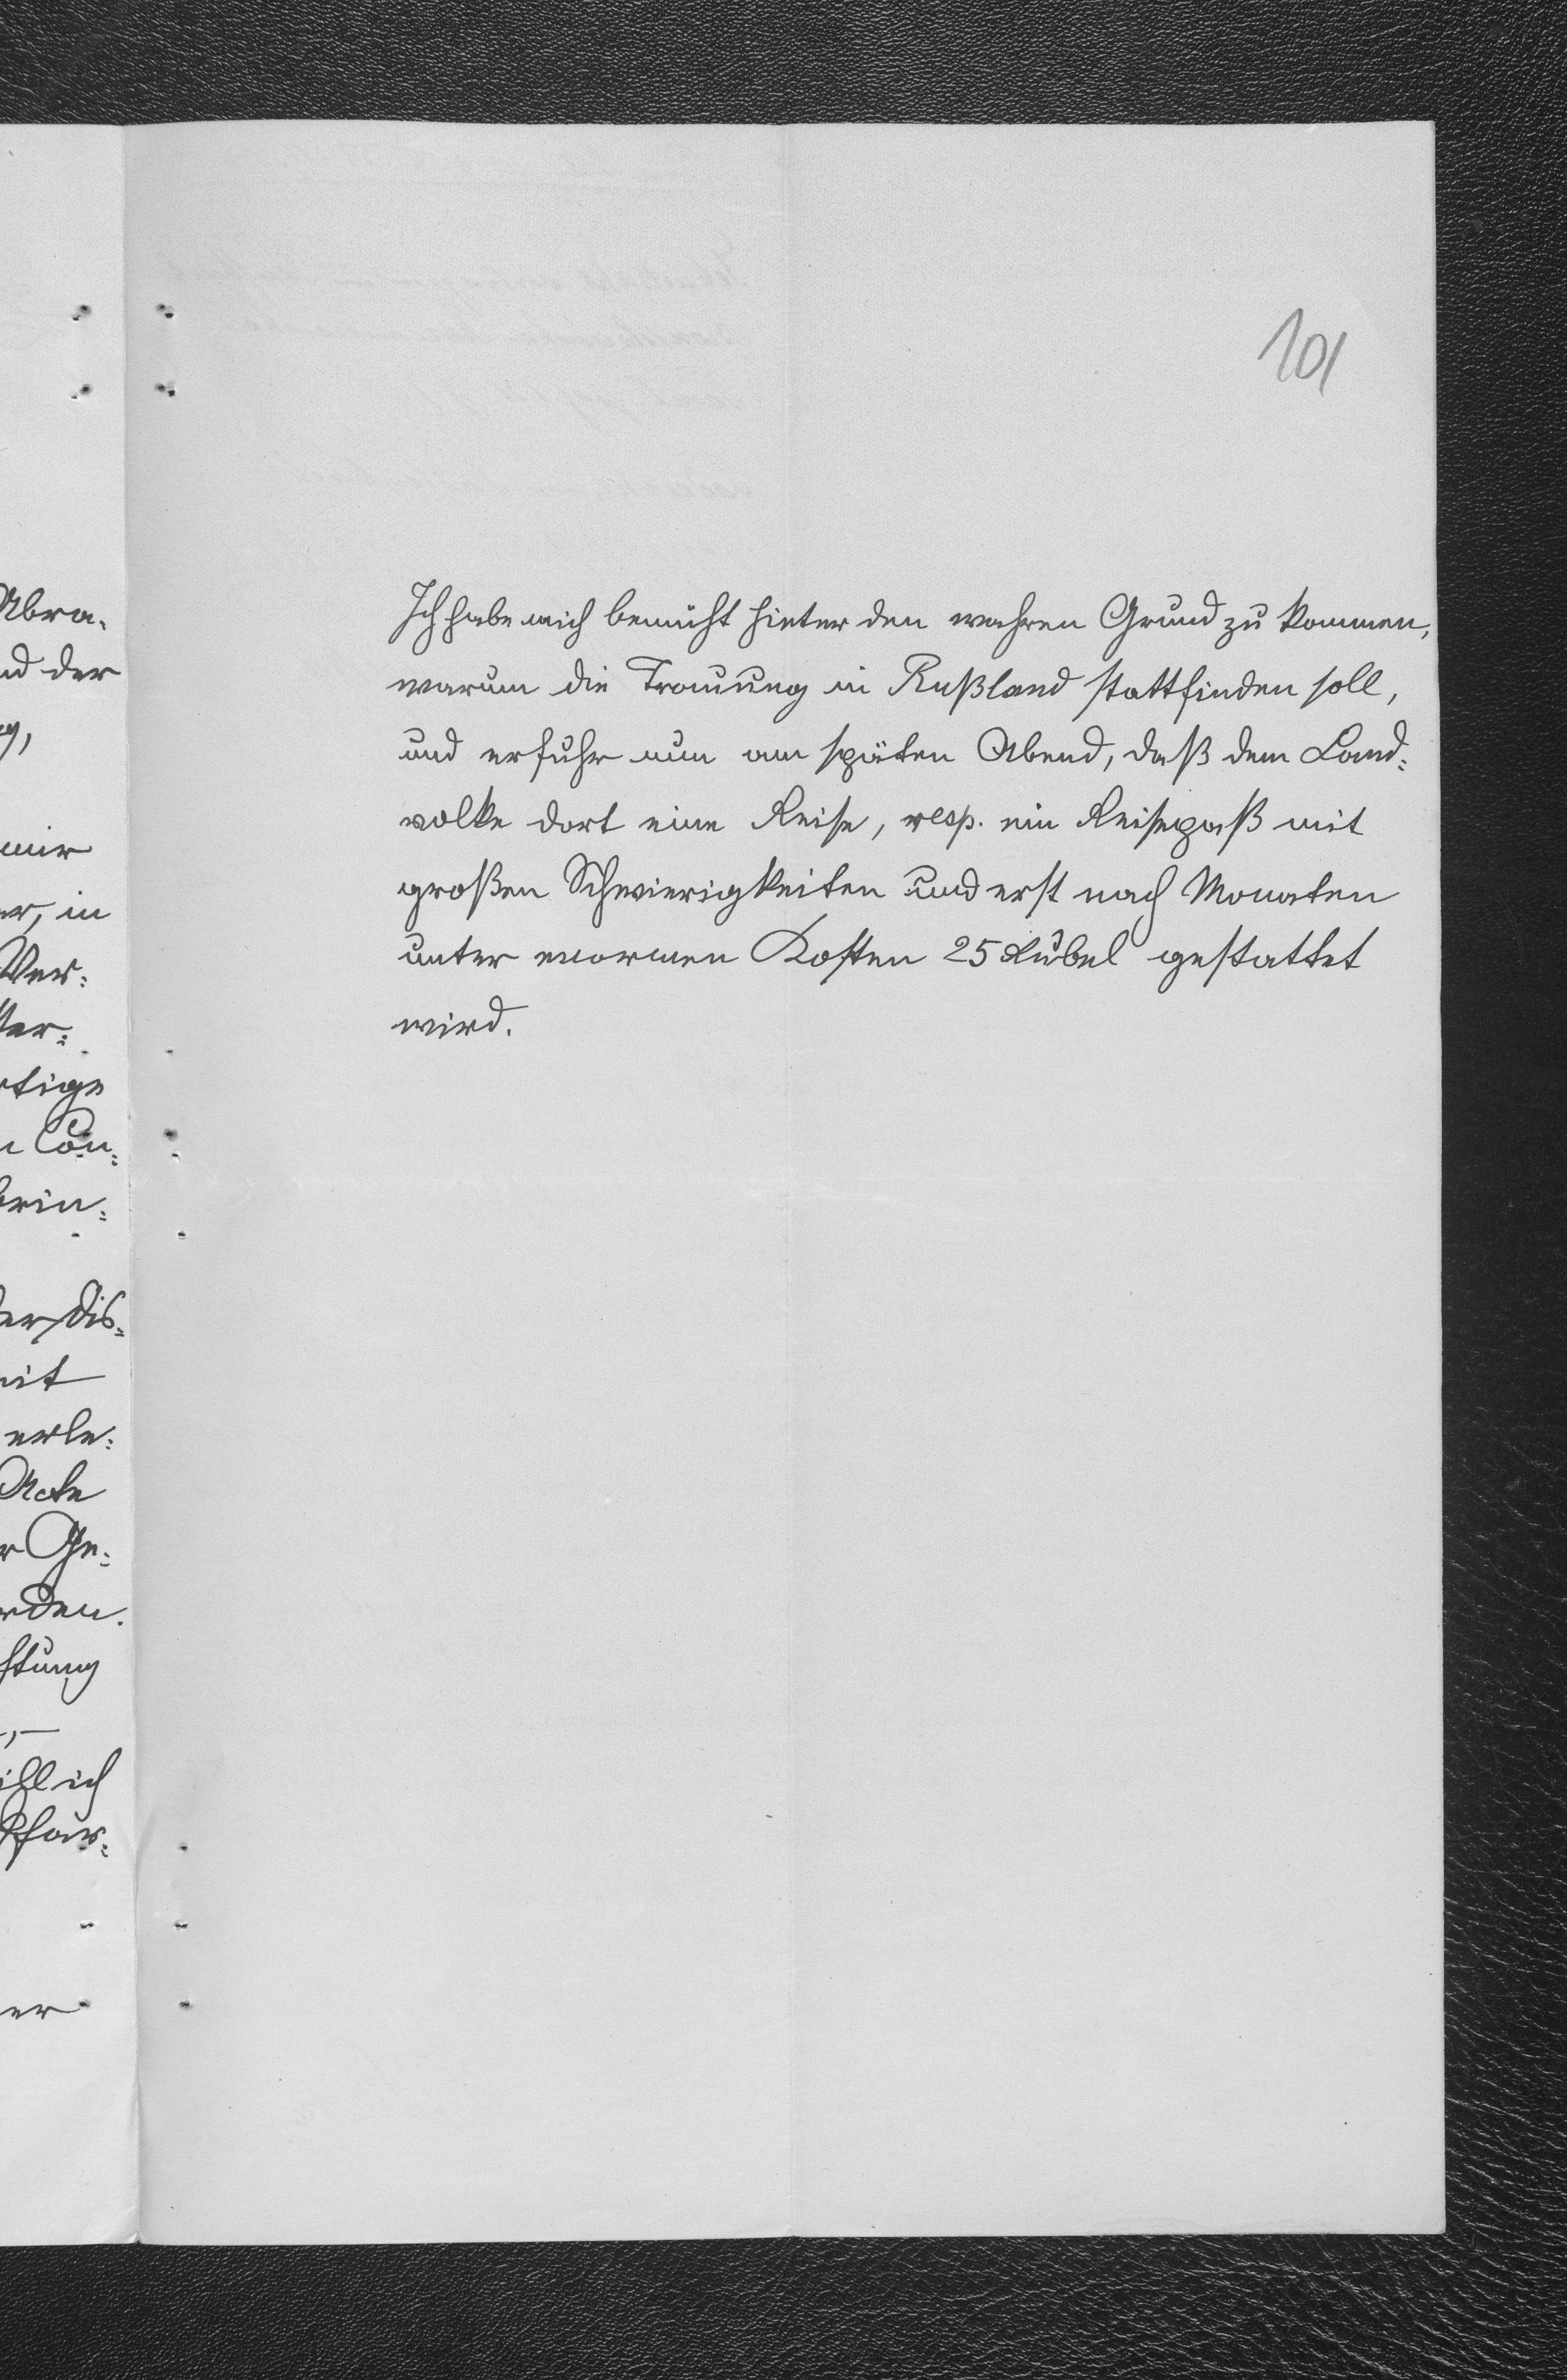 101
Ich habe mich bemüht hinter den wahren Grund zu kommen,
warum die Trauung in Rußland stattfinden soll,
und erfuhr nun am späten Abend, daß dem Land-
volke dort eine Reise, resp. ein Reisepaß mit
großen Schwierigkeiten und erst nach Monaten
unter enormen Kosten 25 Rubel gestattet
wird.
Abra-
nd der
g,
mir
er, in
Ver-
ter-
rtige
n Con-
brin-
der Dis-
mit
erle-
Acte
r Ge-
rden.
ftung
ill ich
Pfar-
er